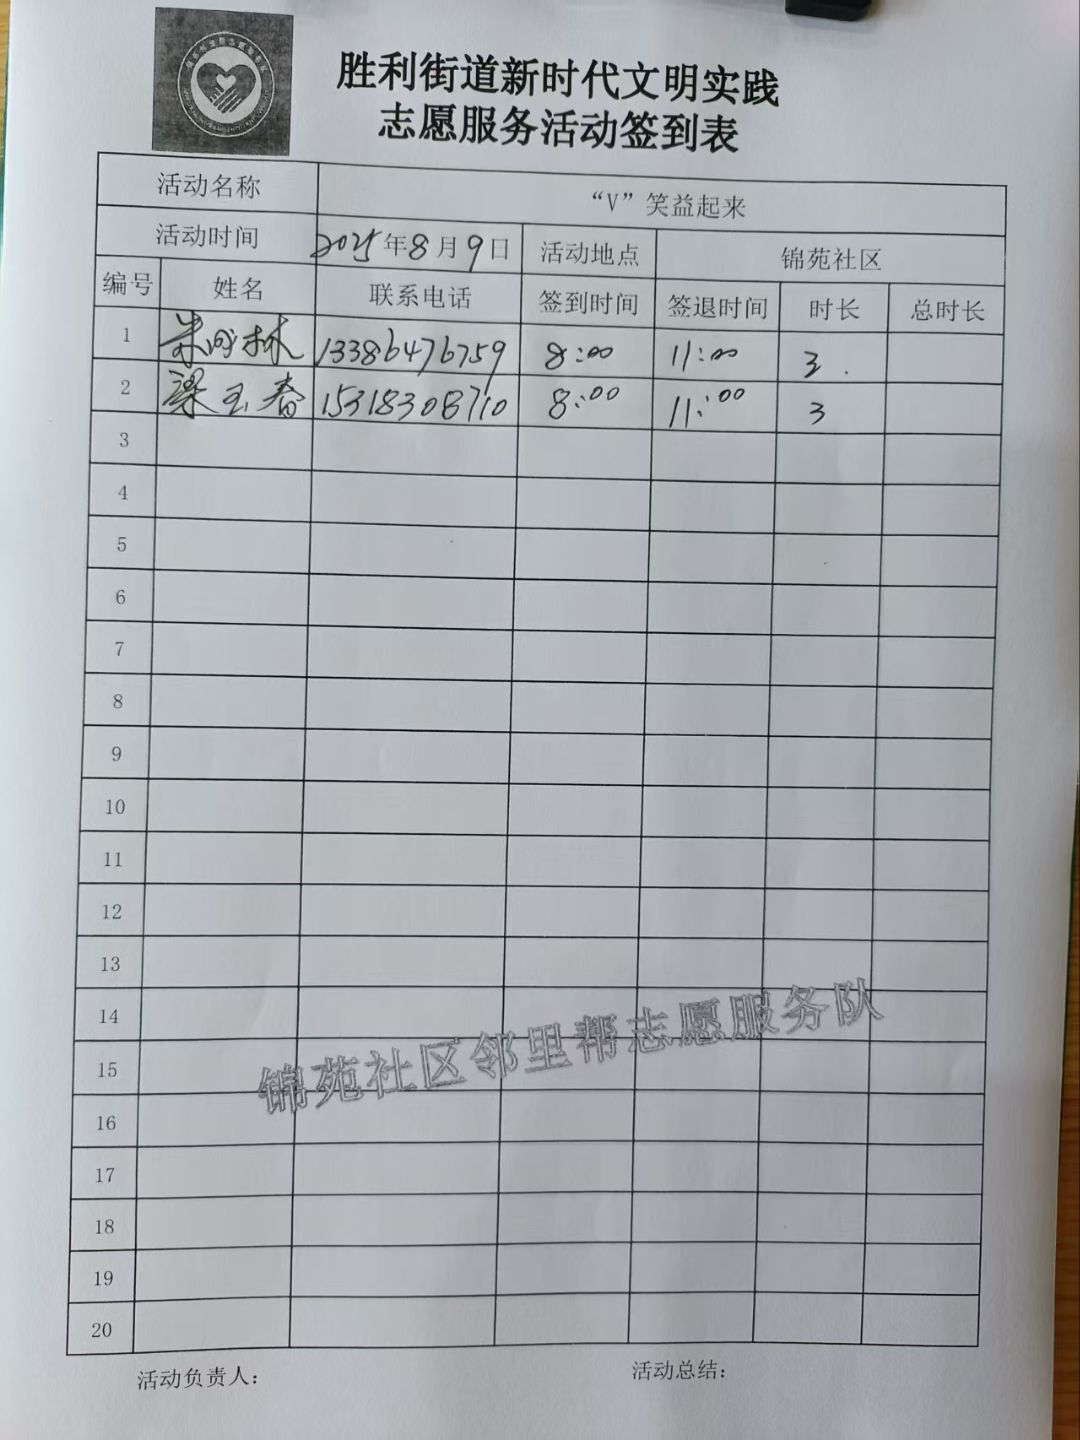 胜利街道新时代文明实践
志愿服务活动签到表
活动名称 “V”笑益起来
活动时间 2025年8月9日 活动地点 锦苑社区
编号 姓名 联系电话 签到时间 签退时间 时长 总时长
1 朱成林 13386476759 8:00 11:00 3.
2 梁玉春 15318308710 8:00 11:00 3
3
4
5
6
7
8
9
10
11
12
13
14
15
16
17
18
19
20
锦苑社区邻里帮志愿服务队
活动负责人: 活动总结: